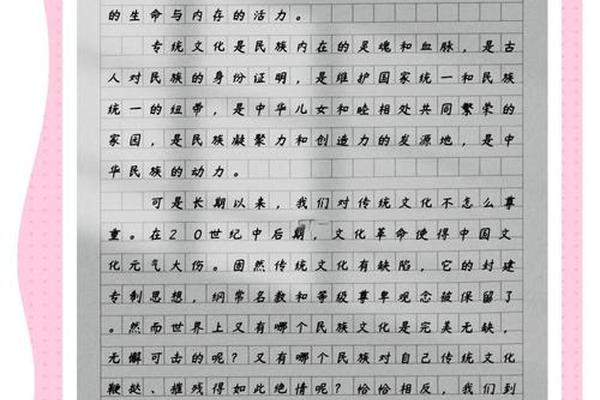 的生命与内存的活力。
专统文化是民族内在的灵魂和血脉，是古
人对民族的身份证明，是维护国家统一和民族
统一的纽带，是中华儿女和睦相处共同繁荣的
家园，是民族凝聚力和创造力的发源地，是中
华民族的动力。
可是长期以来，我们对传统文化不怎么尊
重。在20世纪中后期，文化革命使得中国文
化元气大伤。固然传统文化有缺陷，它的封建
专制思想，纲常名教和等级尊卑观念被保留了
。然而世界上又有哪个民族文化是完美无缺，
无懈可击的呢？又有哪个民族对自己传统文化
鞭挞、摧残得如此绝情呢？恰恰相反，我们到